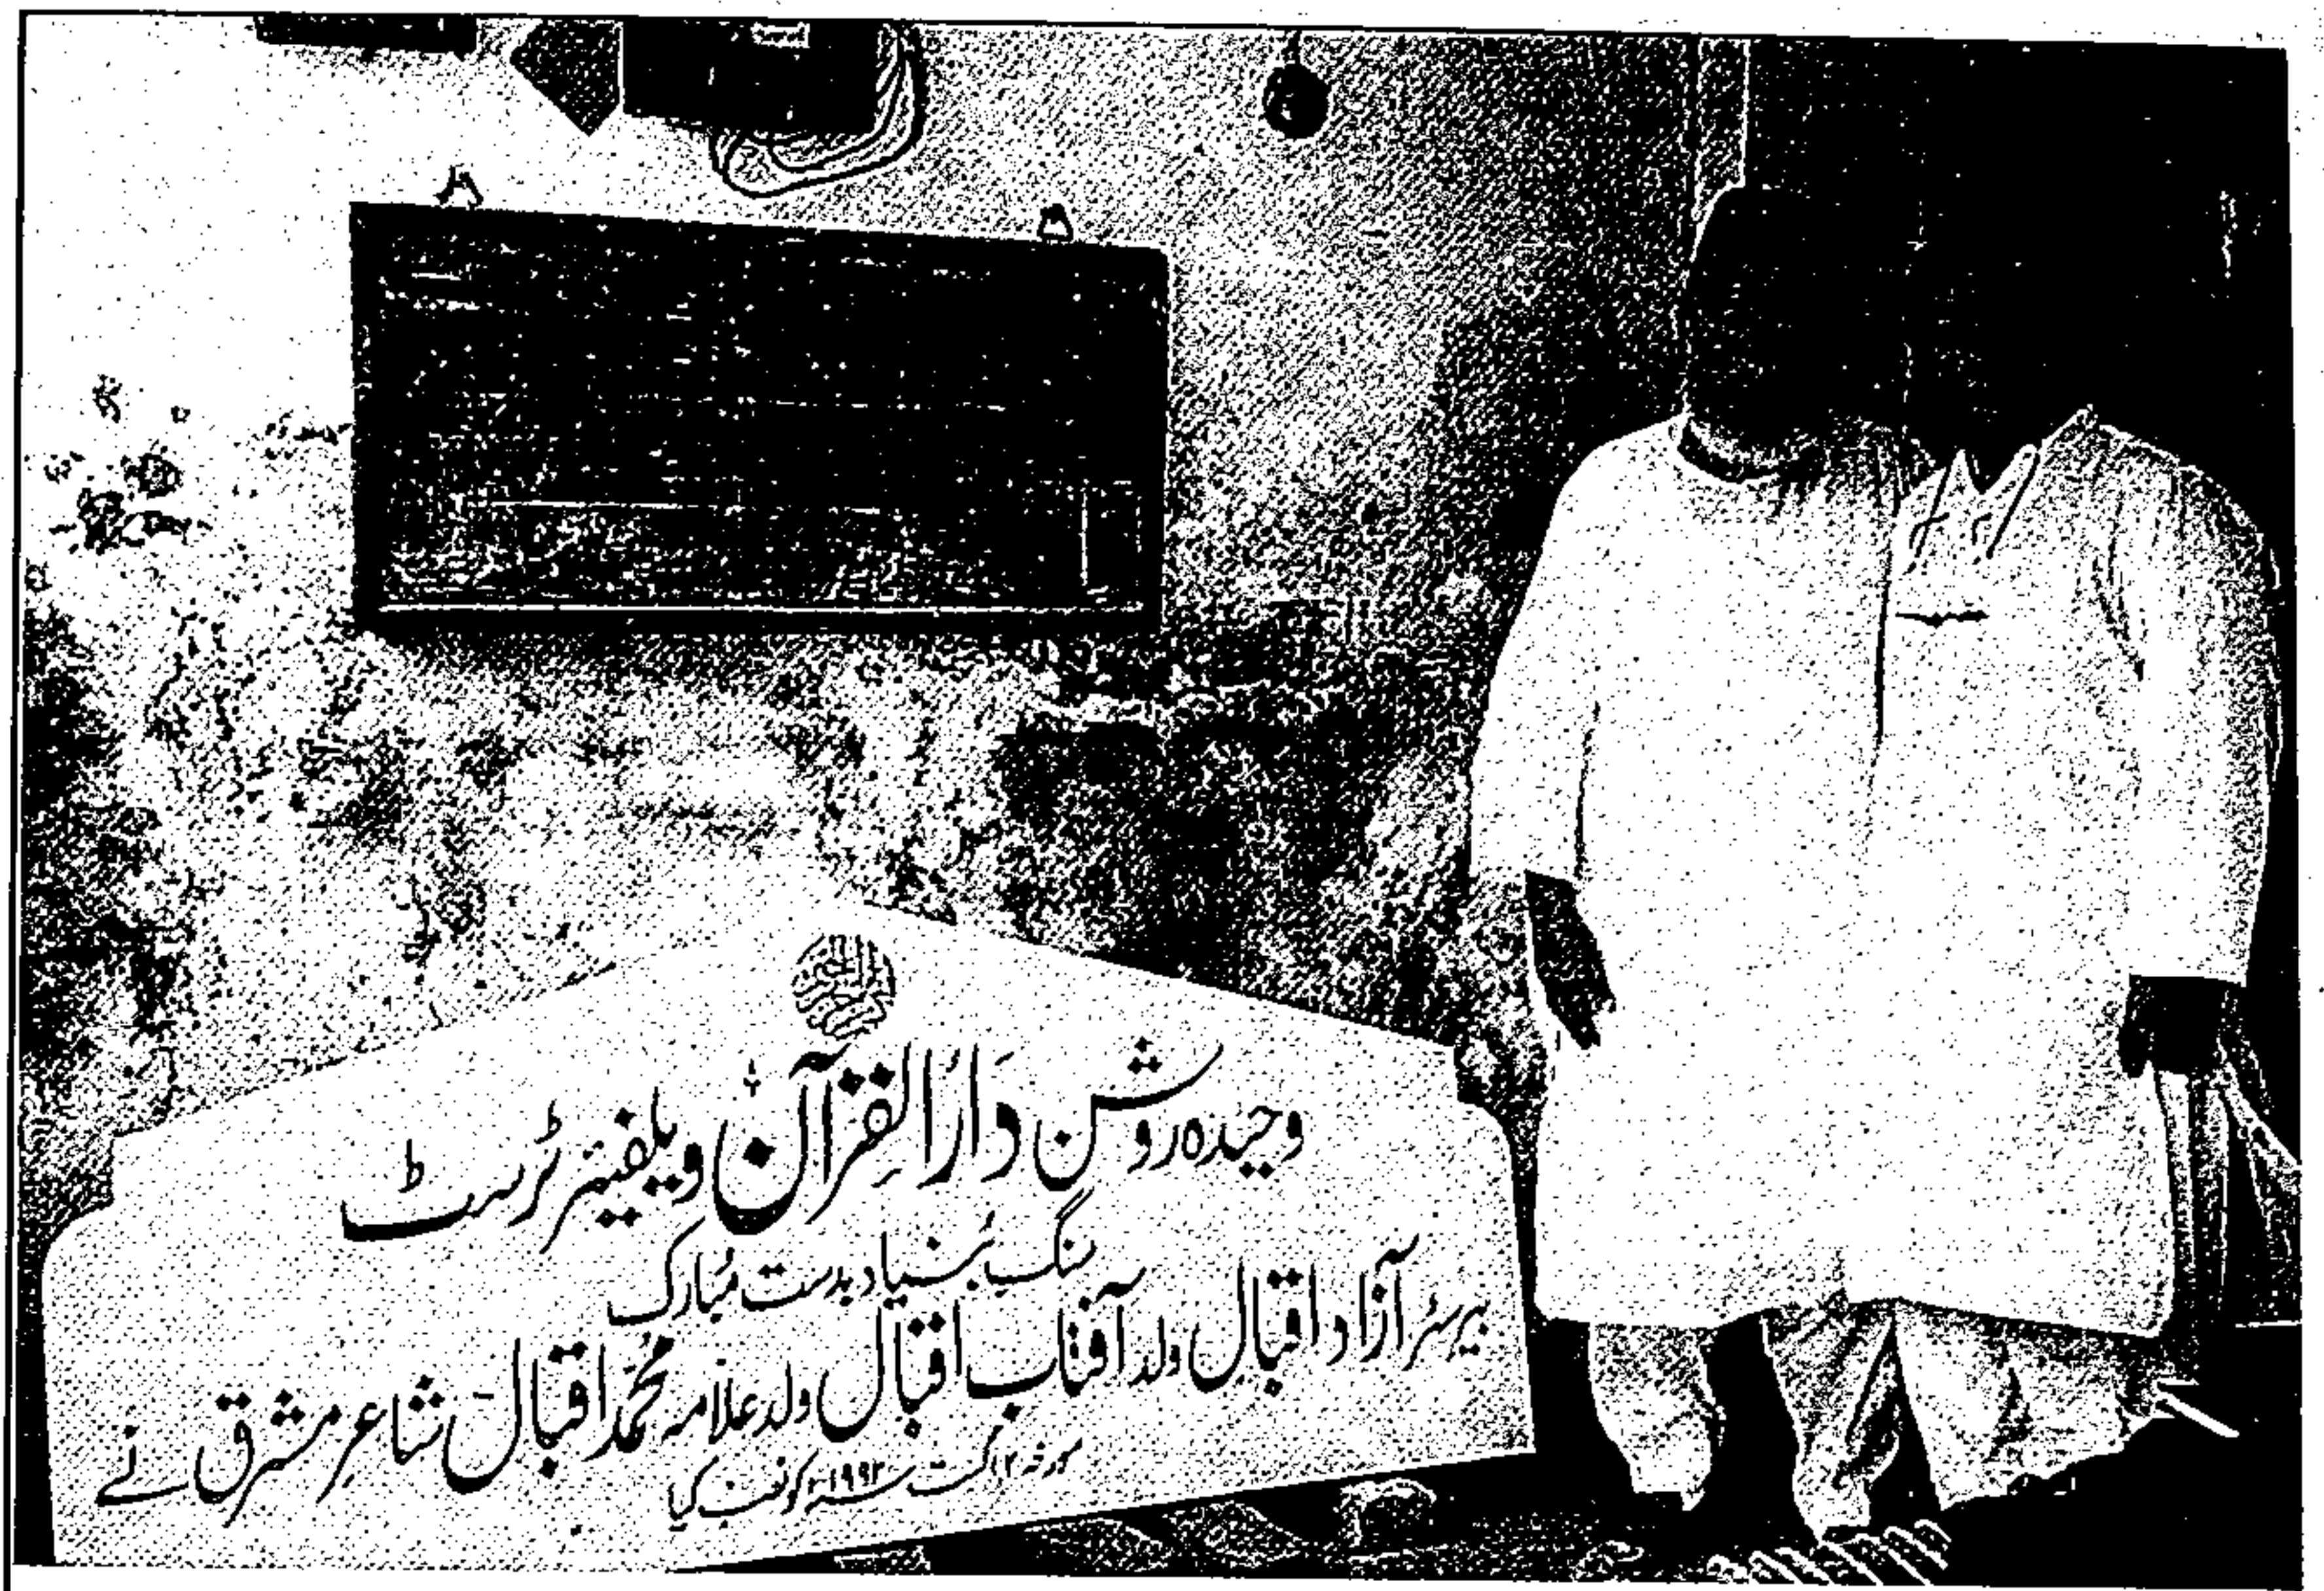 وحیدہ روشن دَارُالقُرآن ویلفیئر ٹرسٹ
سنگِ بُنیاد بدست مُبارک
بیرسٹر آزاد اقبال ولد آفتاب اقبال ولد علامہ محمّد اقبال شاعرِ مشرق نے
مورخہ ۱۲ اگست سنہ ۱۹۹۲ء کو نصب کیا